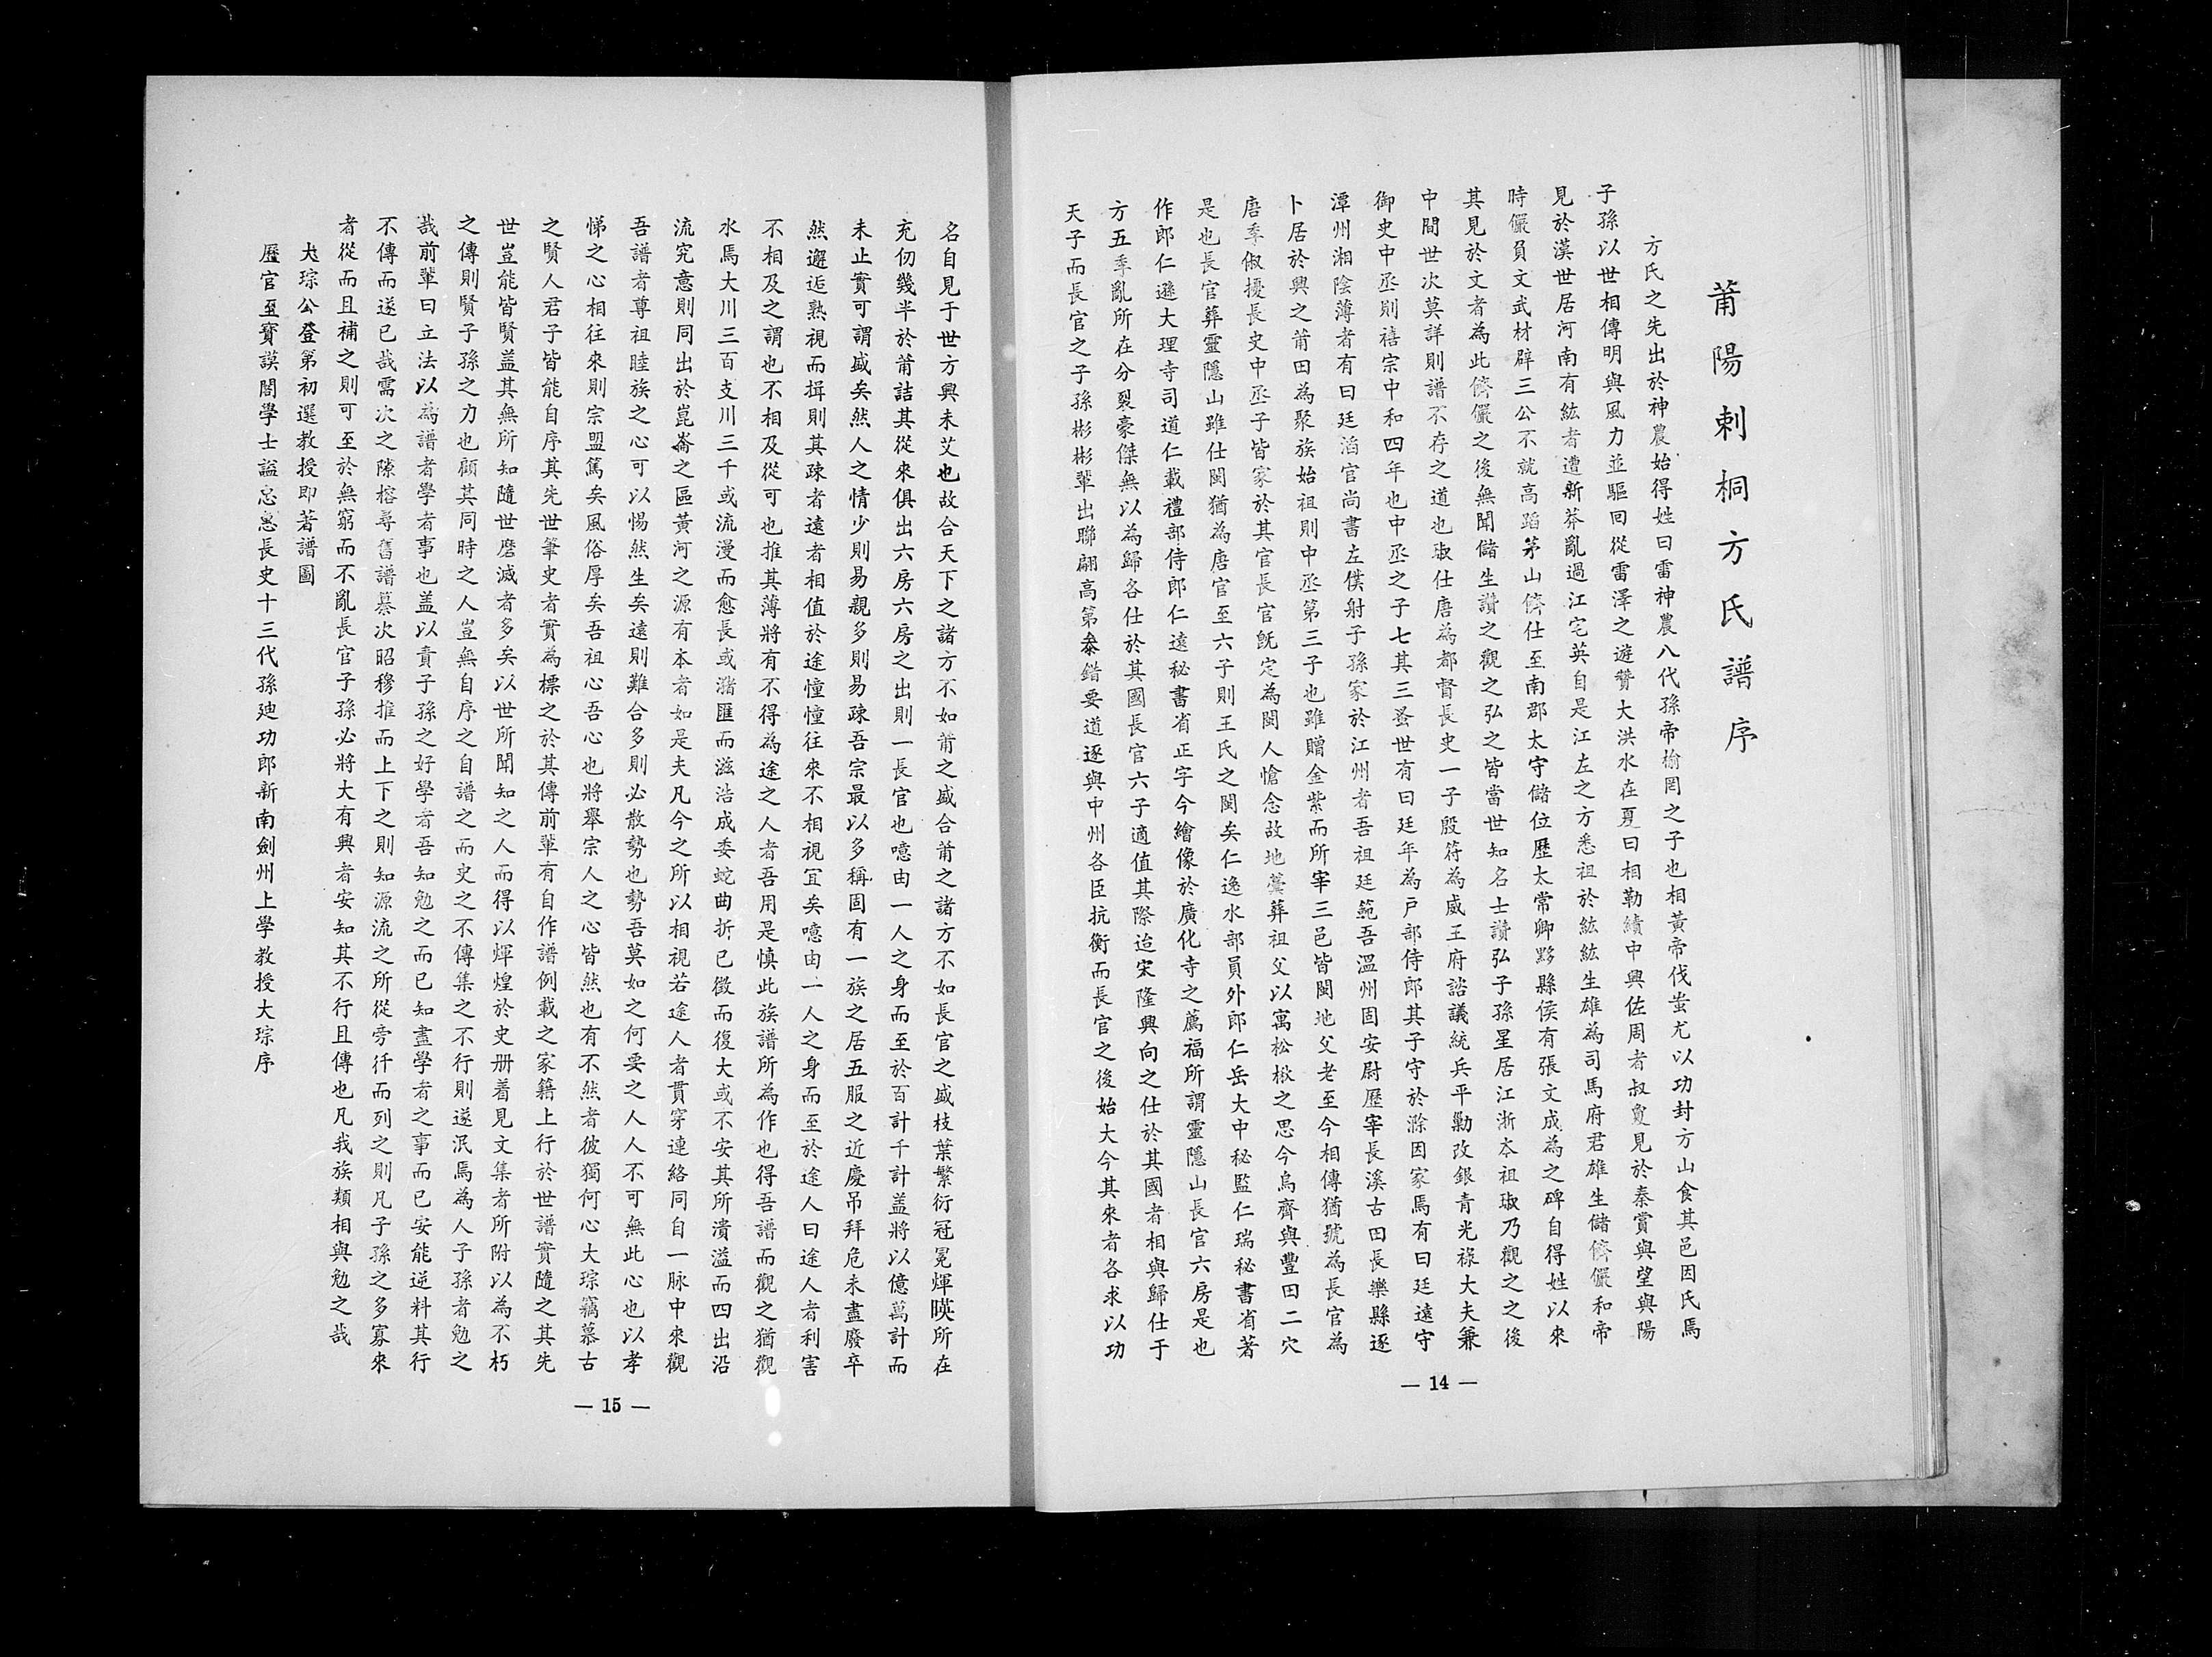 莆陽刺桐方氏譜序
方氏之先出於神農始得姓曰雷神農八代孫帝榆罔之子也相黃帝伐蚩尤以功封方山食其邑因氏焉
子孫以世相傳明與風力並驅回從雷澤之遊贊大洪水在夏曰相勒績中興佐周者叔敻見於秦賞與望與陽
見於漢世居河南有紘者遭新莽亂過江宅英自是江左之方悉祖於紘紘生雄為司馬府君雄生儲儕儼和帝
時儼負文武材辟三公不就高蹈茅山儕仕至南郡太守儲位歷太常卿黟縣侯有張文成為之碑自得姓以來
其見於文者為此儕儼之後無聞儲生讚之觀之弘之皆當世知名士讚弘子孫星居江浙本祖琡乃觀之之後
中間世次莫詳則譜不存之道也琡仕唐為都督長史一子殷符為威王府諮議統兵平勦改銀青光祿大夫兼
御史中丞則禧宗中和四年也中丞之子七其三蚤世有曰廷年為戶部侍郎其子守於滁因家焉有曰廷遠守
潭州湘陰薄者有曰廷滔官尚書左僕射子孫家於江州者吾祖廷範吾溫州固安尉歷宰長溪古田長樂縣逐
卜居於興之莆田為聚族始祖則中丞第三子也雖贈金紫而所宰三邑皆閩地父老至今相傳猶號為長官為
唐季俶擾長史中丞子皆家於其官長官旣定為閩人愴念故地藁葬祖父以寓松楸之思今烏齊與豐田二穴
是也長官葬靈隱山雖仕閩猶為唐官至六子則王氏之閩矣仁逸水部員外郎仁岳大中秘監仁瑞秘書省著
作郎仁遜大理寺司道仁載禮部侍郎仁遠秘書省正字今繪像於廣化寺之薦福所謂靈隱山長官六房是也
方五季亂所在分裂豪傑無以為歸各仕於其國長官六子適值其際迨宋隆興向之仕於其國者相與歸仕于
天子而長官之子孫彬彬輩出聯翩高第叅錯要道逐與中州各臣抗衡而長官之後始大今其來者各求以功
— 14 —
名自見于世方興未艾也故合天下之諸方不如莆之盛合莆之諸方不如長官之盛枝葉繁衍冠冕輝暎所在
充仞幾半於莆詰其從來俱出六房六房之出則一長官也噫由一人之身而至於百計千計盖將以億萬計而
未止實可謂盛矣然人之情少則易親多則易疎吾宗最以多稱固有一族之居五服之近慶吊拜危未盡廢卒
然邂逅熟視而揖則其疎者遠者相值於途憧憧往來不相視宜矣噫由一人之身而至於途人曰途人者利害
不相及之謂也不相及從可也推其薄將有不得為途之人者吾用是慎此族譜所為作也得吾譜而觀之猶觀
水焉大川三百支川三千或流漫而愈長或瀦匯而滋浩成委蛇曲折已微而復大或不安其所潰溢而四出沿
流究意則同出於崑崙之區黃河之源有本者如是夫凡今之所以相視若途人者貫穿連絡同自一脉中來觀
吾譜者尊祖睦族之心可以惕然生矣遠則難合多則必散勢也勢吾莫如之何要之人人不可無此心也以孝
悌之心相往來則宗盟篤矣風俗厚矣吾祖心吾心也將舉宗人之心皆然也有不然者彼獨何心大琮竊慕古
之賢人君子皆能自序其先世筆史者實為標之於其傳前輩有自作譜例載之家籍上行於世譜實隨之其先
世豈能皆賢盖其無所知隨世磨滅者多矣以世所聞知之人而得以煇煌於史册着見文集者所附以為不朽
之傳則賢子孫之力也顧其同時之人豈無自序之自譜之而史之不傳集之不行則遂泯焉為人子孫者勉之
哉前輩曰立法以為譜者學者事也盖以責子孫之好學者吾知勉之而已知盡學者之事而已安能逆料其行
不傳而遂已哉需次之陳榕尋舊譜纂次昭穆推而上下之則知源流之所從旁行而列之則凡子孫之多寡來
者從而且補之則可至於無窮而不亂長官子孫必將大有興者安知其不行且傳也凡我族類相與勉之哉
大琮公登第初選教授即著譜圖
歷官至寶謨閣學士謚忠惠長史十三代孫廸功郎新南劍州上學教授大琮序
— 15 —